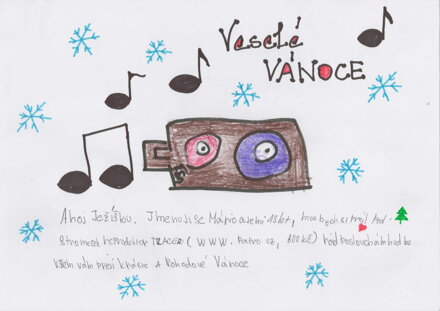 Veselé
VÁNOCE
Ahoj Ježíšku, Jmenuji se a je mi let, moc bych si přál pod
stromeček reproduktor (www. .cz, 800 kč) rád poslouchám hudbu
všem vám přeji krásné a Pohodové Vánoce